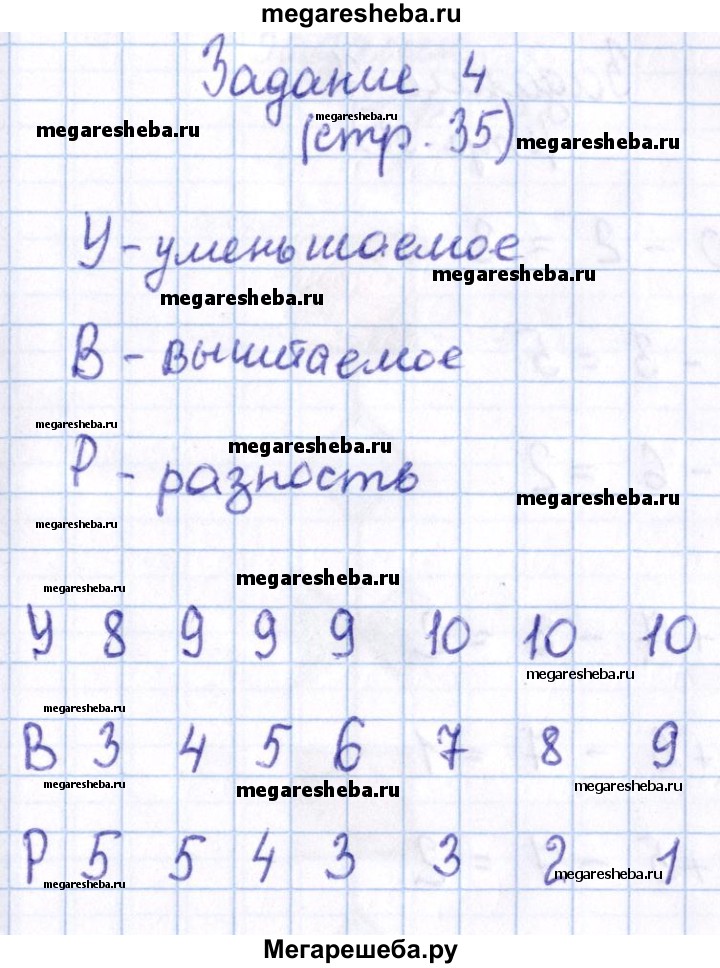 megaresheba.ru
Задание 4
megaresheba.ru
megaresheba.ru
(стр. 35)
megaresheba.ru
У - уменьшаемое
megaresheba.ru
megaresheba.ru
В - вычитаемое
megaresheba.ru
megaresheba.ru
Р - разность
megaresheba.ru
megaresheba.ru
megaresheba.ru
megaresheba.ru
У 8 9 9 9 10 10 10
megaresheba.ru
megaresheba.ru
В 3 4 5 6 7 8 9
megaresheba.ru
megaresheba.ru
megaresheba.ru
Р 5 5 4 3 3 2 1
megaresheba.ru
megaresheba.ru
Мегарешеба.ру